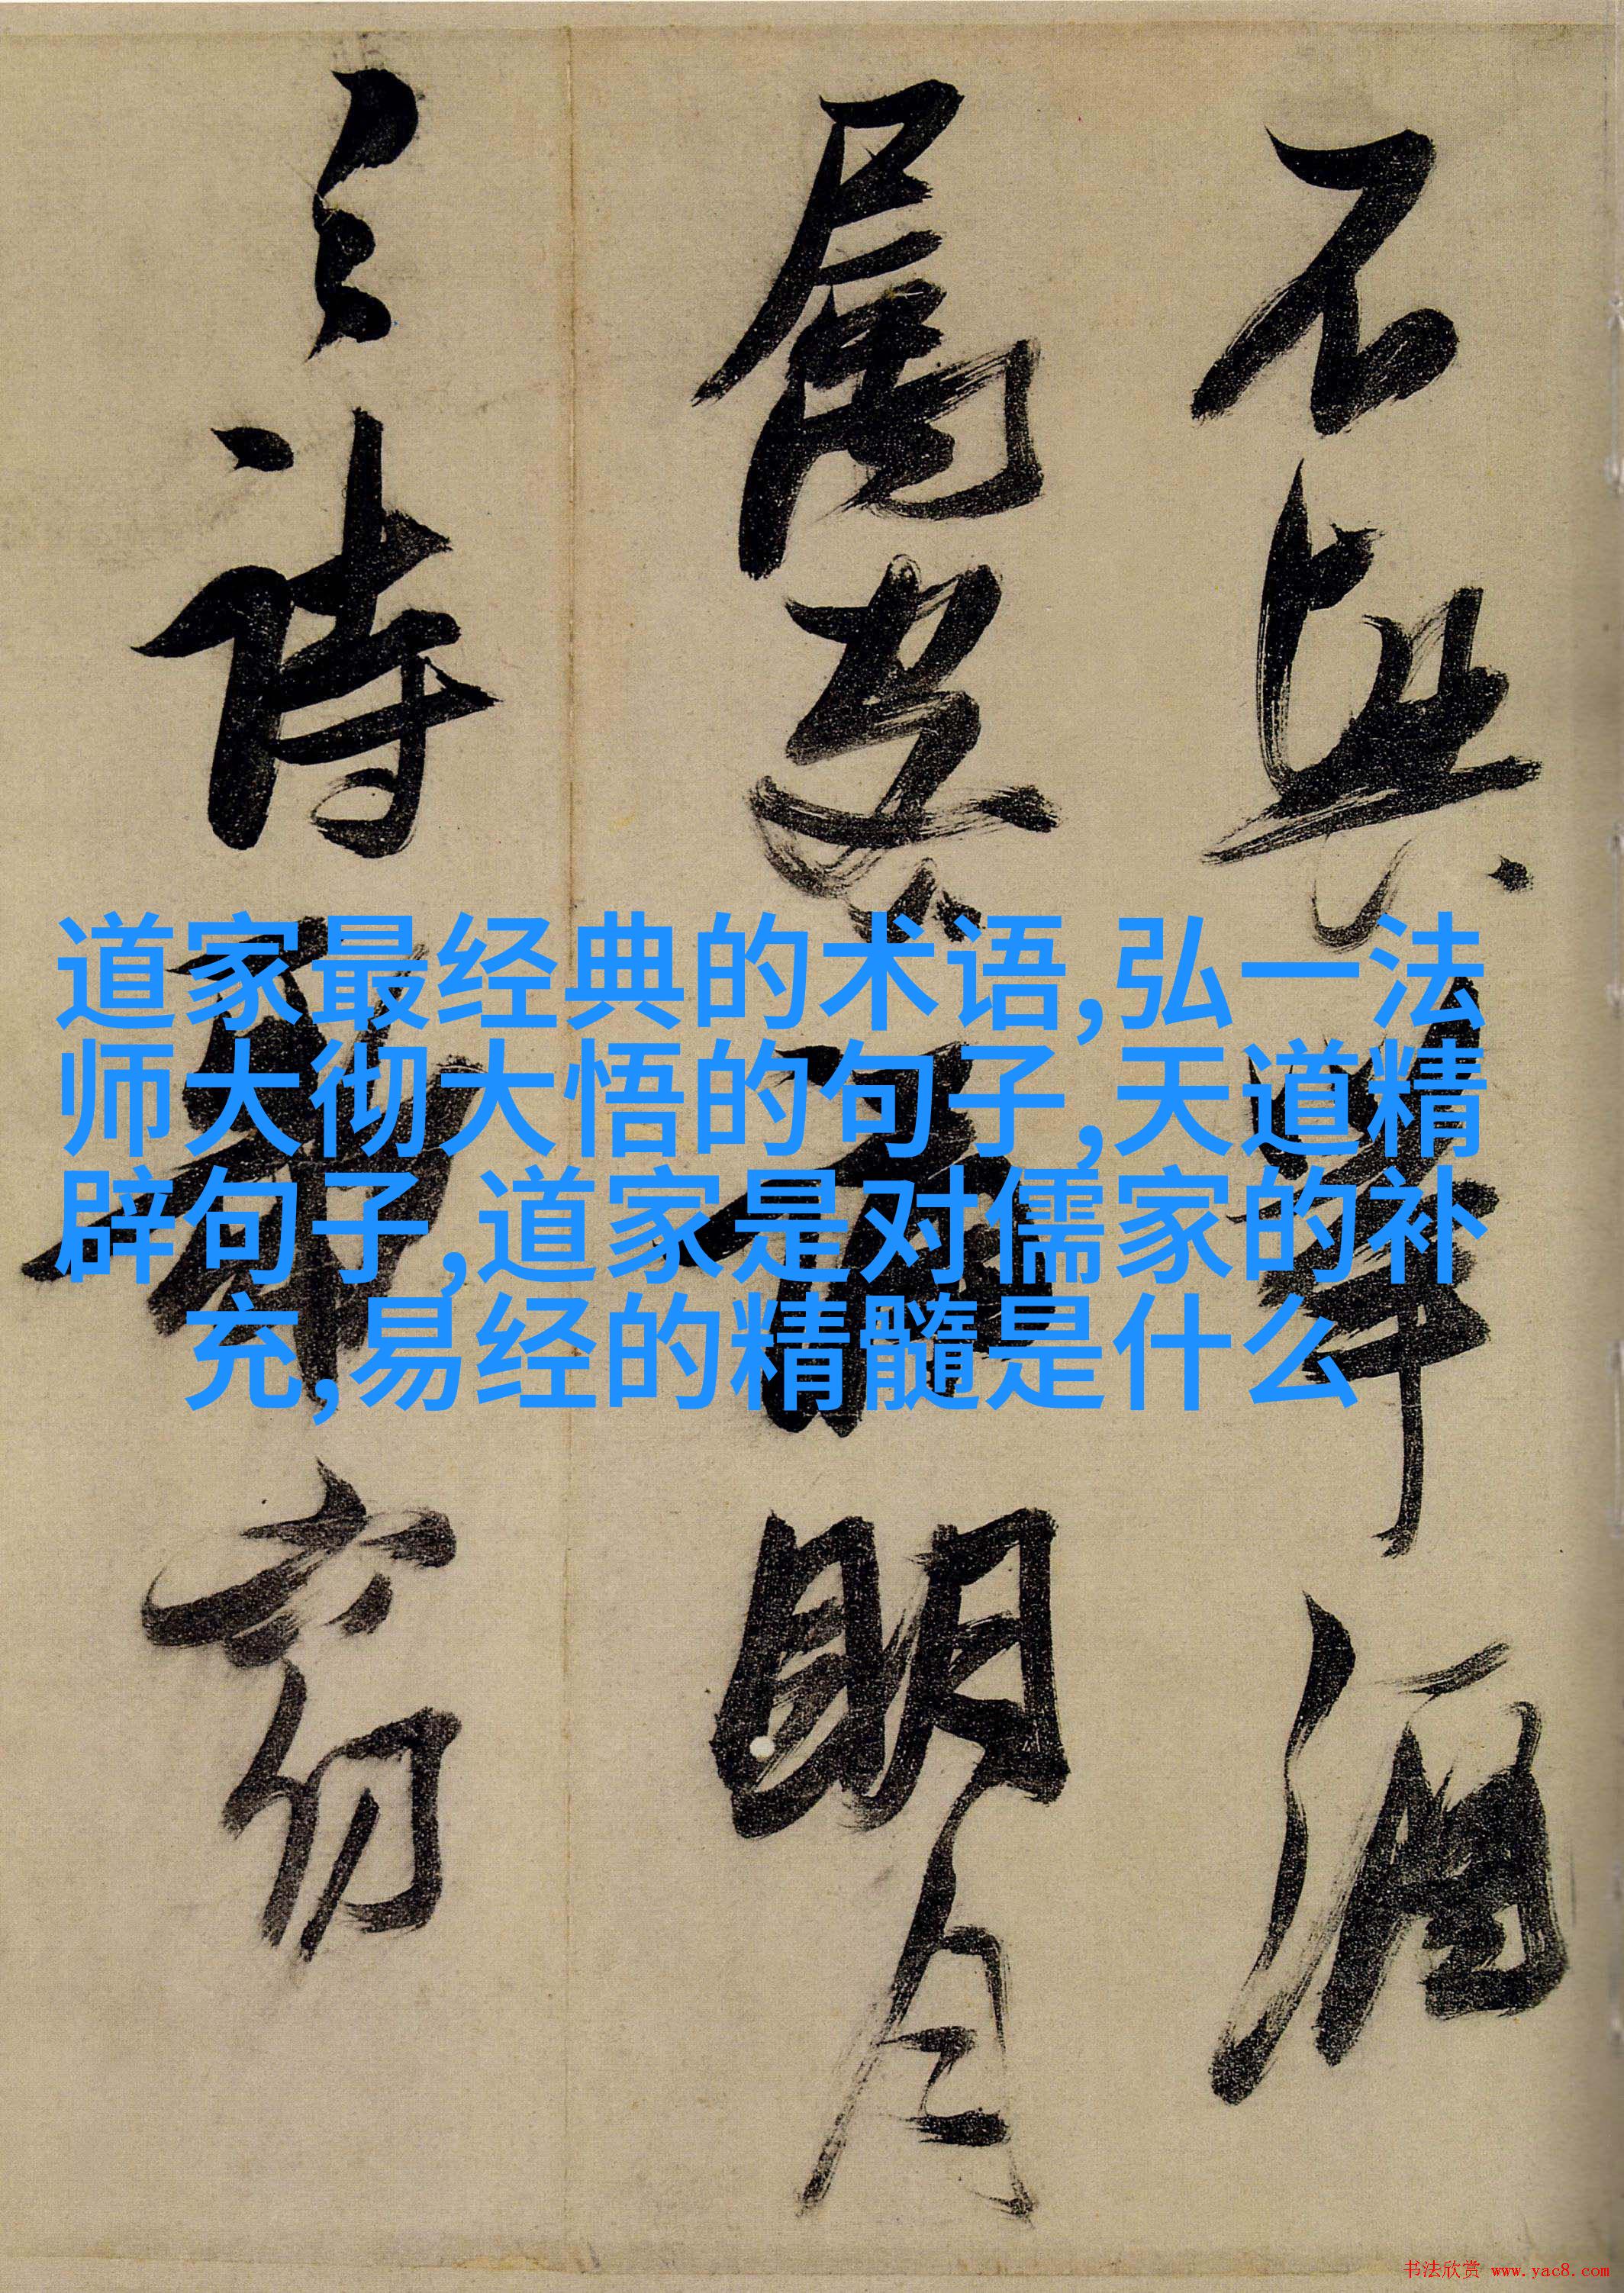 不興舉酒
屬客誦明月
之詩歌窈
道家最经典的术语,弘一法
师大彻大悟的句子,天道精
辟句子,道家是对儒家的补
充,易经的精髓是什么
书法欣赏 www.yac8.com